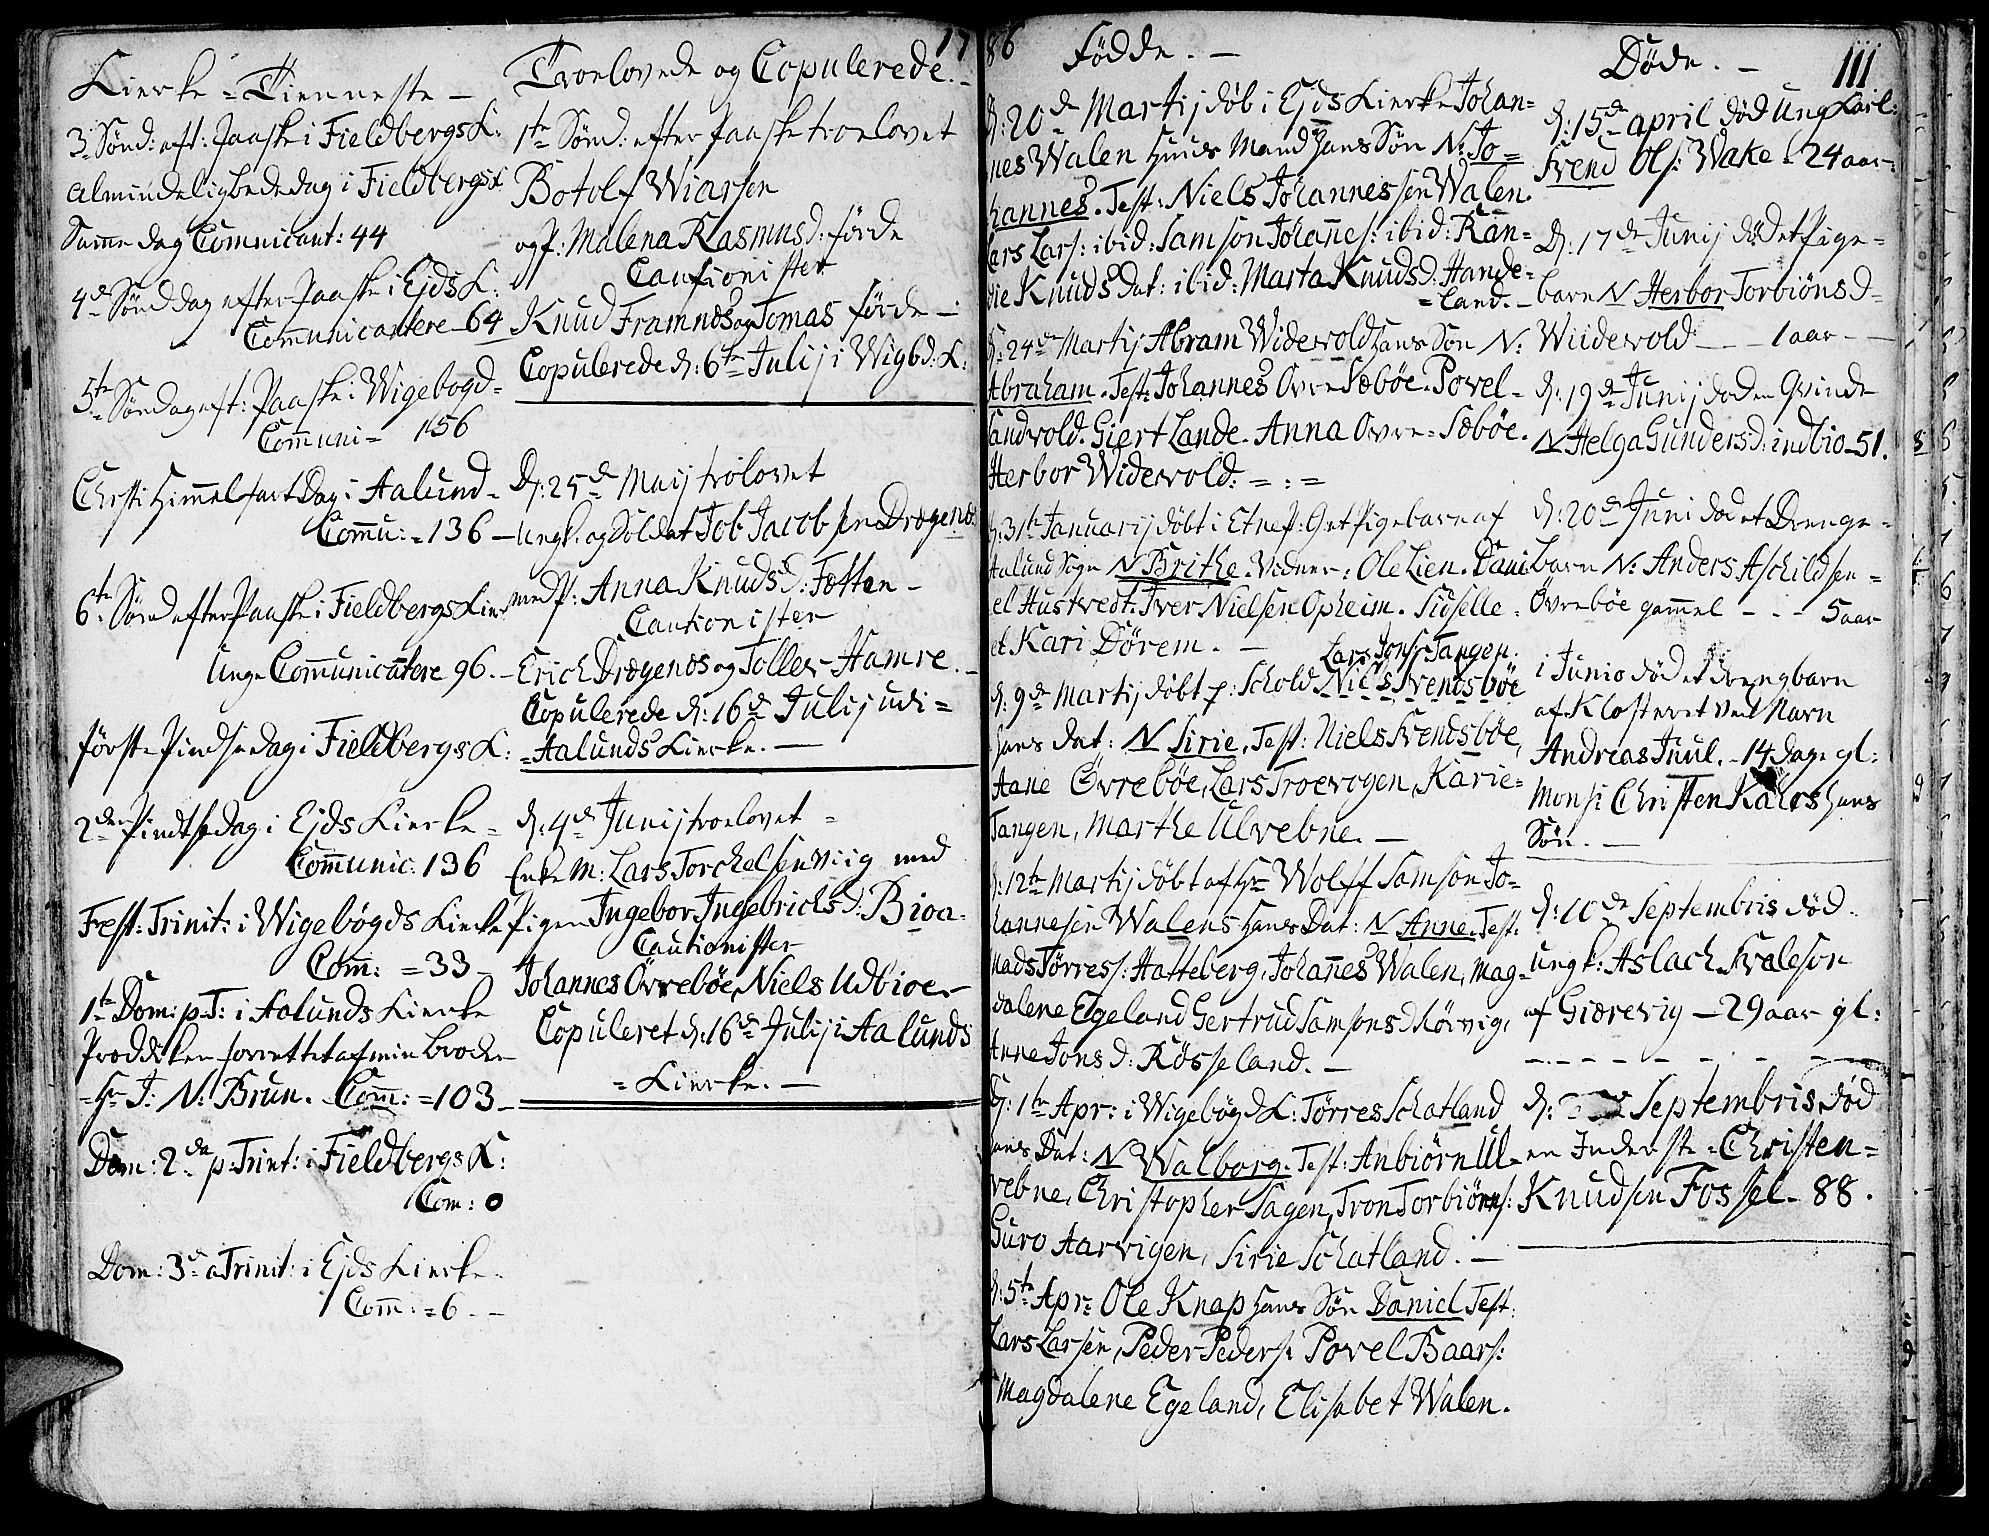 1786
111
Kierke-Tienneste —
3. Sönd: eft: Paaske i Fieldbergs K.
Almindelig bededag i Fieldbergs K
Samme dag Comnicant: 44
4de Sönddag efter Paaske i Ejds K.
Communicantere 64
5te Söndag eft: Paaske: Wigebogd-
Communi= 156
Christi Himmelfart Dag i Aalund-
Commu: = 136 —
6te Sönd efter Paaske i Fieldbergs Kier
Unge Communicantere 96. —
förste Pindsedag i Fieldbergs K:
2den Pindtsedag i Ejds Kierke =
Communic: 136
Fest: Trinit: i Wigebögds Kierke
Com: = 33 -
1te Dom: p. T: i Aalunds Kierke
Prædiken forrettet af min broder
Hr J: N: Brun. Com: = 103 —
Dom: 2da p. Trint: i Fieldbergs K:
Com: 0
Dom: 3de a Trinit: i Ejds Kierke.
Com: = 6. —
Troelovede og Copulerede. —
1te Sönd: efter Paaske troelovet
Botolf Wiarsen
og P: Malena Rasmusd: förde
Cautionister
Knud Framnes og Tomas förde —
Copulerede d: 6te Julij i Wigbd: K:
D: 25de Maij trolovet
Ungk. og Soldat Job Jacobsen Dragenes
med P: Anna Knudsd: Fetten —
Cautionister
Erich Dragenes og Tollev Hamre. —
Copulerede d: 16de Julij udi =
= Aalunds Kierke. —
d: 4de Junij troelovet =
Enke M: Lars Torchelsen Wiig med
Pigen Ingebor Ingebrichsd: Bioa-
Cautionister
Johannes Övreböe, Niels Udbioe —
Copuleret d: 16de Julij i Aalunds
= Kierke. —
Födde. —
d: 20de Martij döb i Ejds Kierke Johan=
nes Walen Huus Mand Hans Sön N: Jo=
hannes. Test: Niels Johannessen Walen.
Lars Lars: ibid: Samson Johannes: ibid: Ran=
die Knuds Dat: ibid: Marta Knudsd: Hande=
= land. —
d: 24de Martij Abram Widewold Hans Sön N:
Abraham. Test: Johannes Ovre Sæböe. Povel —
Sandvold. Giert Lande. Anna Ovre-Sæböe.
Herbor Widewold: = : =
d: 31te Januarij döbt i Etne P: G et Pigebarn af
Aalund Sogn N Brithe. Vidner: Ole Lien. Dani
el Hustvedt. Iver Nielsen Opheim. Sidselle =
et Kari Dörem. —
Lars Jons: Tangen.
d: 9de Martij döbt p: Schold Niels Svendsböe
Hans Dat: N Sirie, Test: Niels Svendsböe,
Aane Övreböe, Lars Troevogen, Karie=
Tangen, Marthe Ulvebne. —
d: 12te Martij döbt af Hr Wolff Samson Jo=
hannesen Walens Hans Dat: N Anne. Test.
Mads Törress: Hatteberg, Johannes Walen, Mag=
dalene Egeland Gertrud Samsonsd Körvig,
Anne Jonsd: Rösseland. —
d: 1te Apr: i Wigebögd K: Törres Schatland
Hans Dat: N Walborg. Test: Anbiörn Ul=
vebne, Christopher Sagen, Tron Torbiörns:
Guro Aarvigen, Sirie Schatland. —
d: 5te Apr: Ole Knap Hans Sön Daniel Test:
Lars Larsen, Peder Peders: Povel Baars:
Magdalene Egeland, Elisabet Walen.
Döde. —
d: 15de april död Ung Karl:
Svend Ols: Wake — 24 aar —
D: 17de Junij död et Pige=
barn N Herbor Torbiönsd=
Wiidewold — — 1 aar — —
d: 19de Junij död en Qvinde
N Helga Gundersd: indbio 51.
d: 20de Juni död et Drenge=
barn N: Anders Aschildsen =
Övreböe gammel - - - 5 aar
i Junio död et drengbarn
af Klosteret ved Navn
Andreas Juul. - 14 dage gl:
Monsr: Christen Kahrs Hans
Sön. —
d: 10de Septembris död
ungk: Aslach Svaleson
af Giærevig — 29 aar gl:
d: Septembris död
en Inderste - Christen=
Knudsen Fossel — 88.